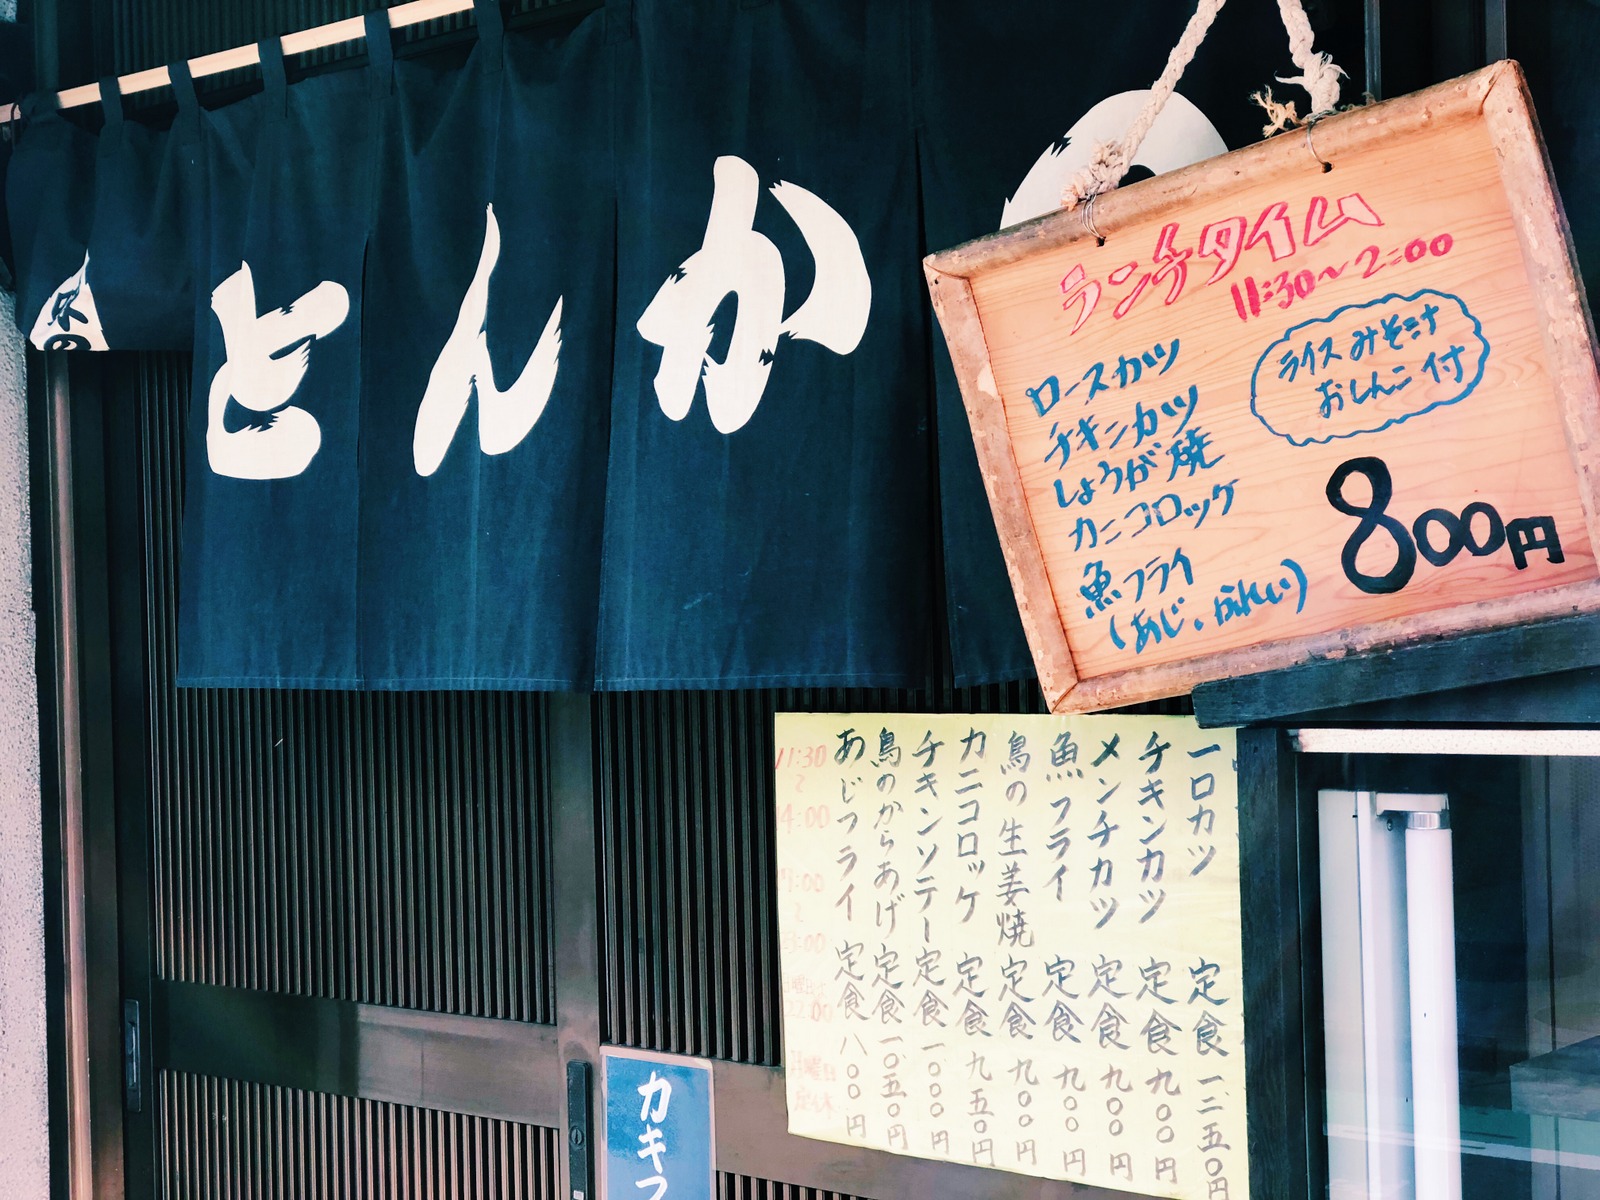 味の
とんか
ランチタイム
11:30〜2:00
ロースカツ
チキンカツ
しょうが焼
カニコロッケ
魚フライ
(あじ、かれい)
ライスみそ汁
おしんこ付
800円
一口カツ 定食 一二五〇円
チキンカツ 定食 九〇〇円
メンチカツ 定食 九〇〇円
魚フライ 定食 九〇〇円
鳥の生姜焼 定食 九〇〇円
カニコロッケ 定食 九五〇円
チキンソテー 定食 一〇〇〇円
鳥のからあげ 定食 一〇五〇円
あじフライ 定食 八〇〇円
11:30
〜
14:00
22:00
月曜日
定休
カキフ